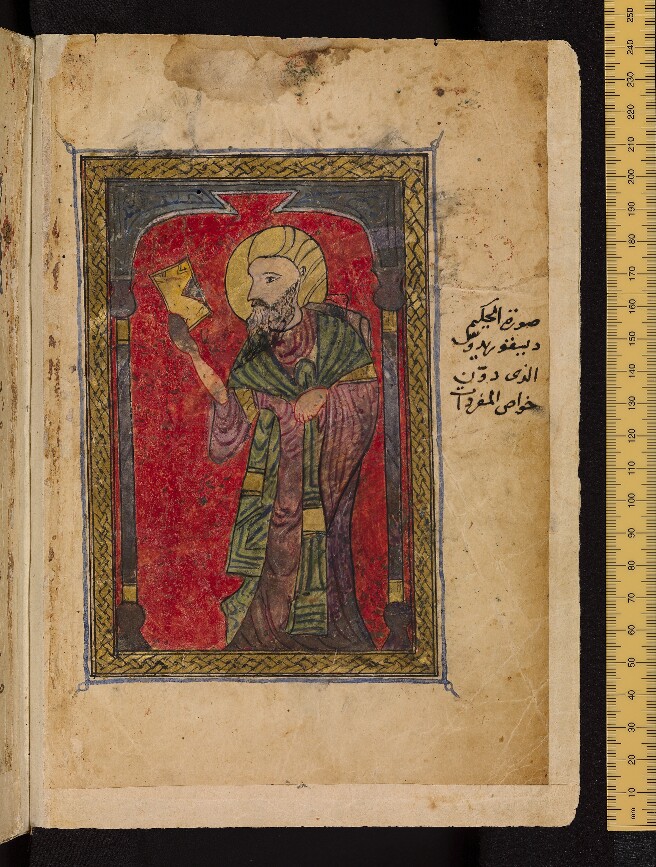 صورة الحكيم
ديسقوريدوس
الذى دوّن
خواص المفردات
250
240
230
220
210
200
190
180
170
160
150
140
130
120
110
100
90
80
70
60
50
40
30
20
10
mm